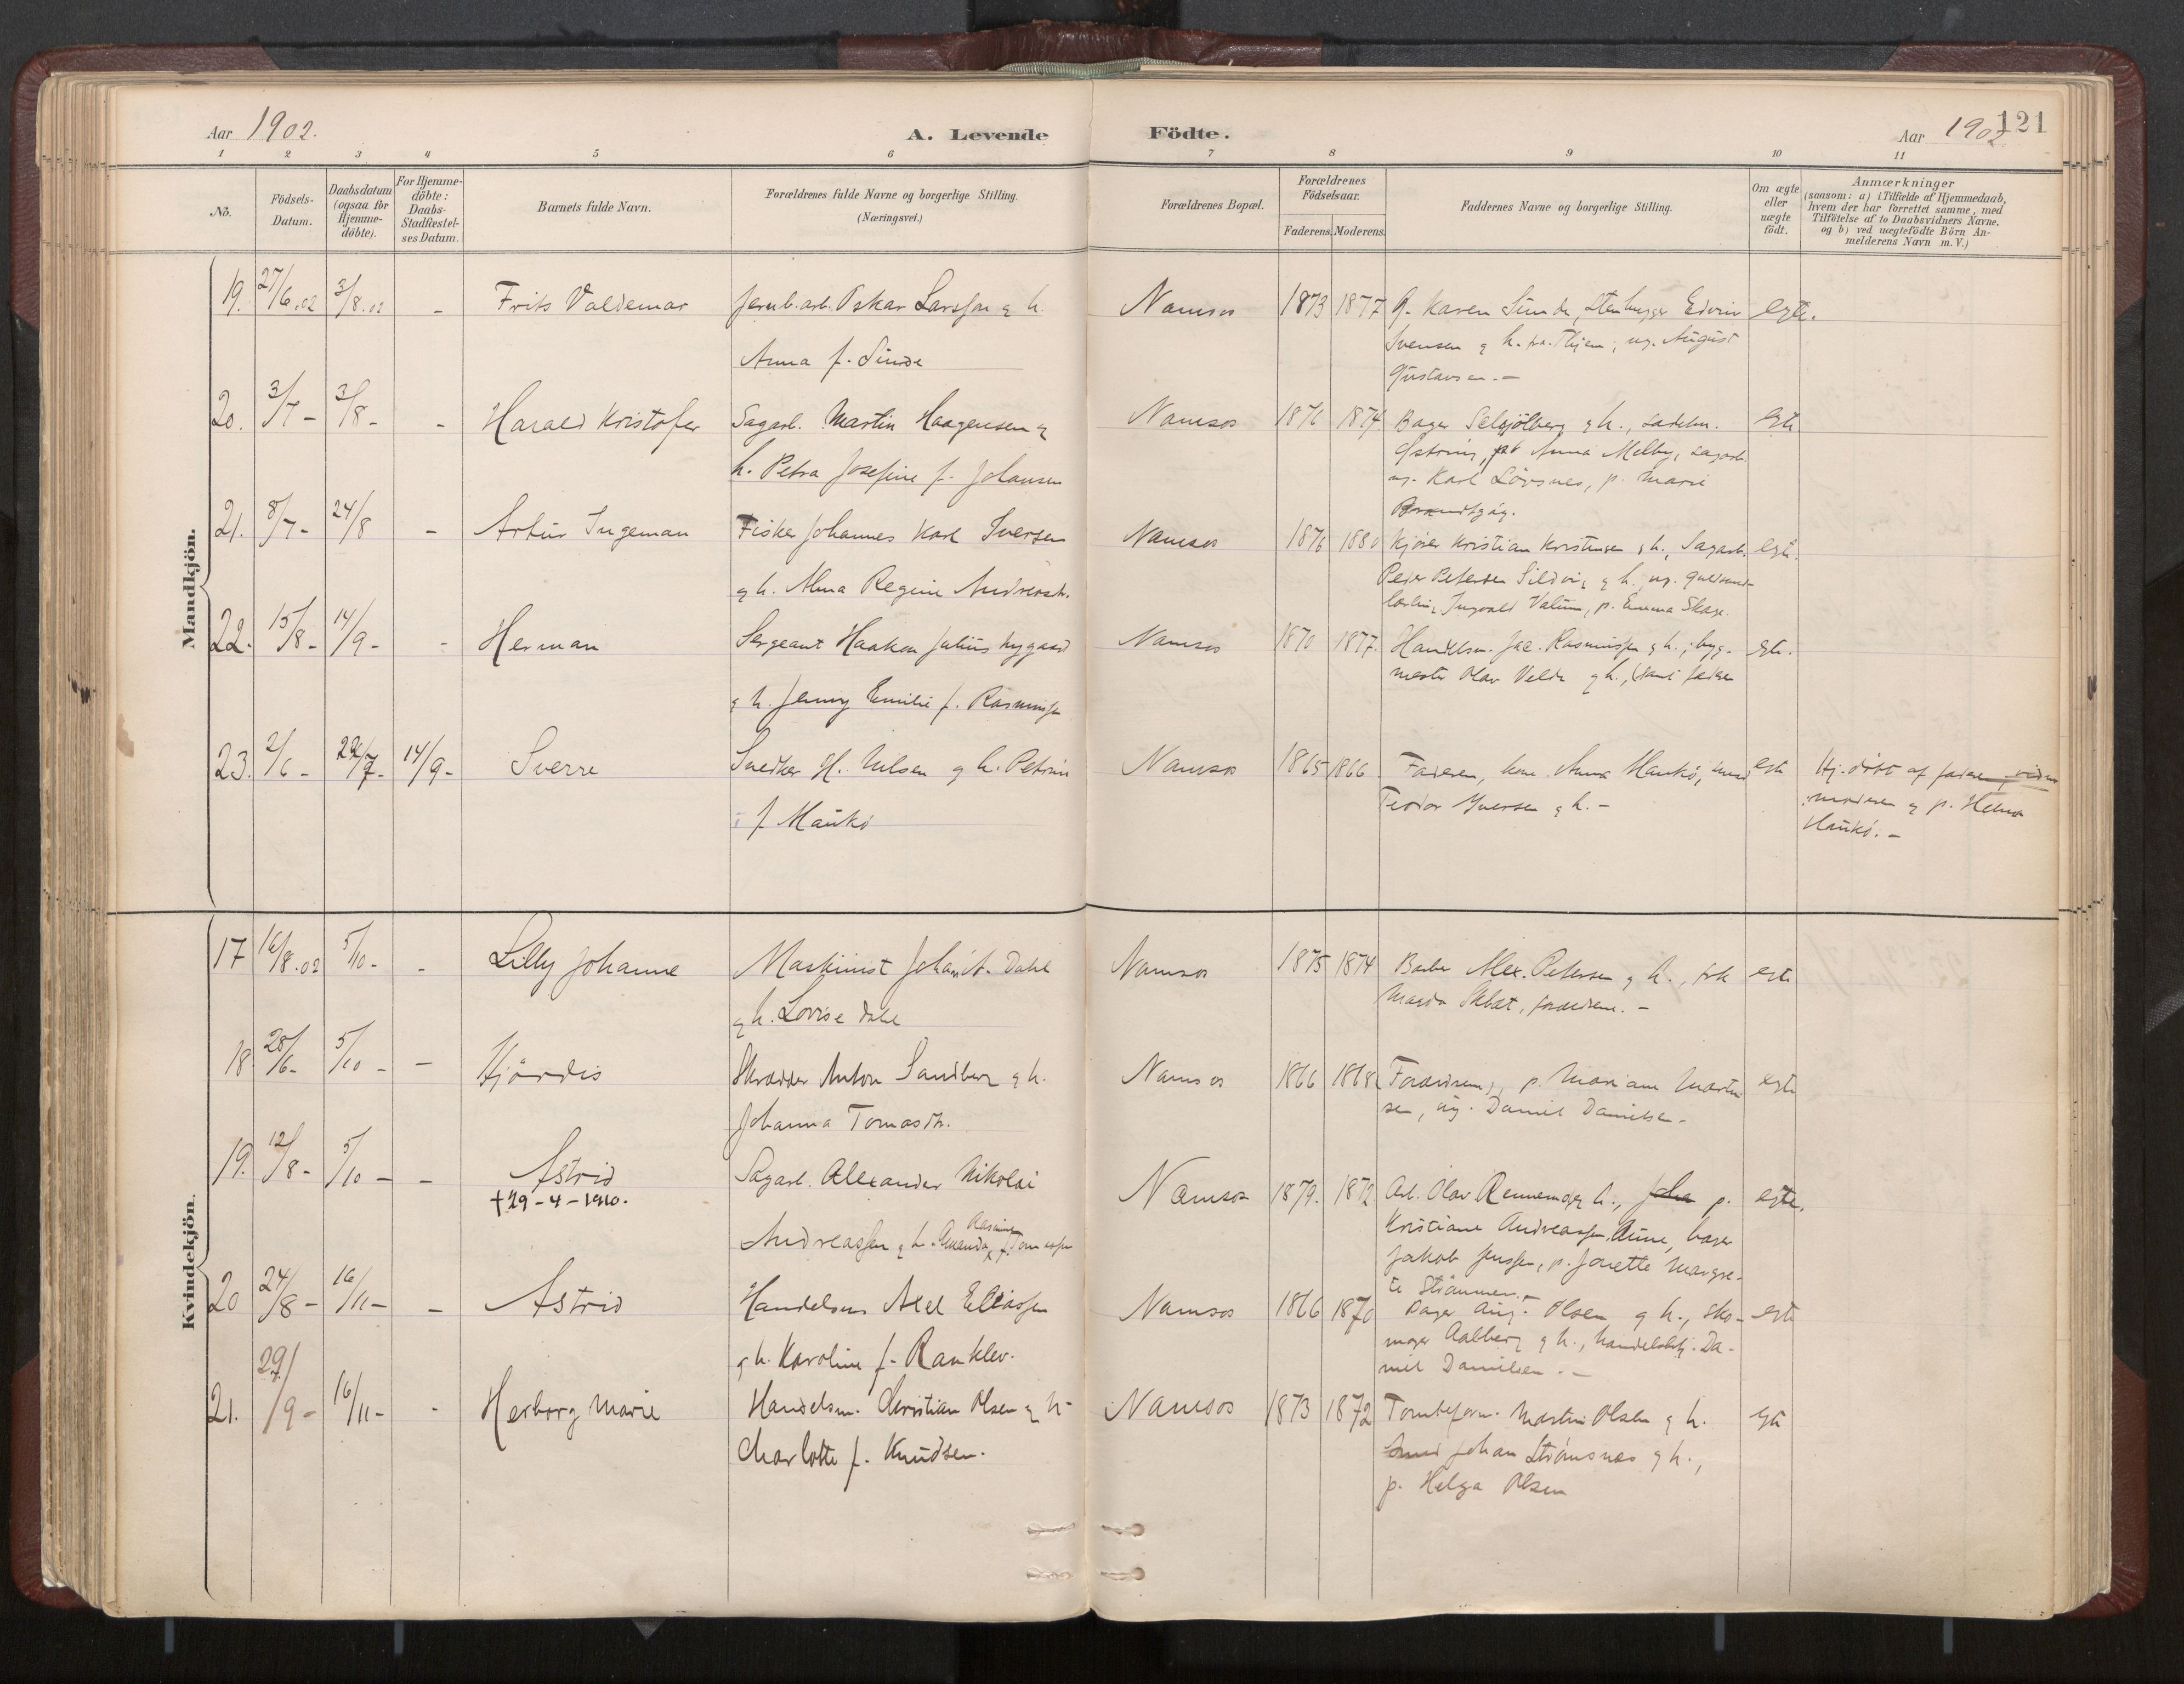 Aar 1902.
A. Levende
Födte.
Aar 1902
121
1 2 3 4 5 6 7 8 9 10 11
No.
Födsels-
Datum.
Daabsdatum
(ogsaa for
Hjemme-
döbte).
For Hjemme-
döbte:
Daabs-
Stadfæstel-
ses Datum.
Barnets fulde Navn.
Forældrenes fulde Navne og borgerlige Stilling.
(Næringsvei.)
Forældrenes Bopæl.
Forældrenes
Födselsaar.
Faderens. Moderens.
Faddernes Navne og borgerlige Stilling.
Om ægte
eller
uægte
födt.
Anmærkninger
(saasom: a) i Tilfælde af Hjemmedaab,
hvem der har forrettet samme, med
Tilföielse af to Daabsvidners Navne,
og b) ved uægtefödte Börn An-
melderens Navn m. V.)
Mandkjön.
19. 27/6.02 3/8.02 - Frits Valdemar Jernb.arb. Oskar Larsson & h. Namsos 1873 1877 G. Karen Sunde, Stenhugger Edvin egte.
Anna f. Sunde
Svensen & h. fra Thjem, ug. August
Gustavsen. -
20. 3/7 - 3/8 - - Harald Kristofer Sagarb. Martin Haagensen & Namsos 1876 1874 Bager Selsjölberg & h., sadelm. egte
h. Petra Josefine f. Johansen
Anna Melby, sagarb.
ug. Karl Lövsnes, p. Marie
21. 8/7 - 24/8 - Artur Ingeman Fisker Johannes Karl Iversen Namsos 1876 1880 Kjörer Kristian Kristensen & h., Sagarb. egte.
& h. Alma Regine Andreasdt.
Peder Petersen Sildvig & h. ug. guldsmed-
lærling Ingvald Valum, p. Emma Skage.
22. 15/8 - 14/9 - - Herman Sergeant Haakon Julius Nygaard Namsos 1870 1877. Handelsm. Jac. Rasmussen & h.; byg- egte.
& h. Jenny Emilie f. Rasmussen
mester Olav Velde & h., samt faderen
23. 2/6 - 14/9 - Sverre Snedker H. Nilsen & h. Petrine Namsos 1865 1866 Faderen, kone Anna Haukö, egte Hj. döbt af faderen, vidner
f. Haukö
Teodor Iversen & h. -
: moderen & p. Helma
Haukö. -
Kvindekjön.
17 16/8.02 5/10 - - Lilly Johanne Maskinist Johan A. Dahl Namsos 1875 1874 Barber Alex. Petersen & h., frk egte
& h. Lovise Dahl
Magda Skbat, forældrene. -
18 28/6 - 5/10 - - Hjördis Skrædder Anton Sandberg & h. Namsos 1866 1868 Forældrene, p. Mariane Martin egte
Johanna Tomasdt.
sen, ug. Daniel Danielsen -
19. 12/8 - 5/10 - - Astrid Sagarb. Alexander Nikolai Namsos 1879. 1872 Arb. Olav Rennemo & h., Joha p. egte.
+ 29 - 4 - 1910.
Andreassen & h. Amanda Rasmine f. Tomassen
Kristiane Andreassen Aune, bager
Jakob Jenssen, p. Jonette Margre-
te Strömmen. -
20 24/8 - 16/11 - - Astrid Handelsm. Axel Eliassen Namsos 1866 1870 Bager Aug. Olsen & h., sko- egte
& h. Karoline f. Ranklev.
mager Aalberg & h., handelsbtj. Da-
niel Danielsen. -
21. 29/9 - 16/11 - - Herborg Marie Handelsm. Christian Olsen & h. Namsos 1873 1872 Tomteform. Martin Olsen & h. egte
Charlotte f. Knudsen.
Johan Strömsnes & h.,
p. Helga Olsen